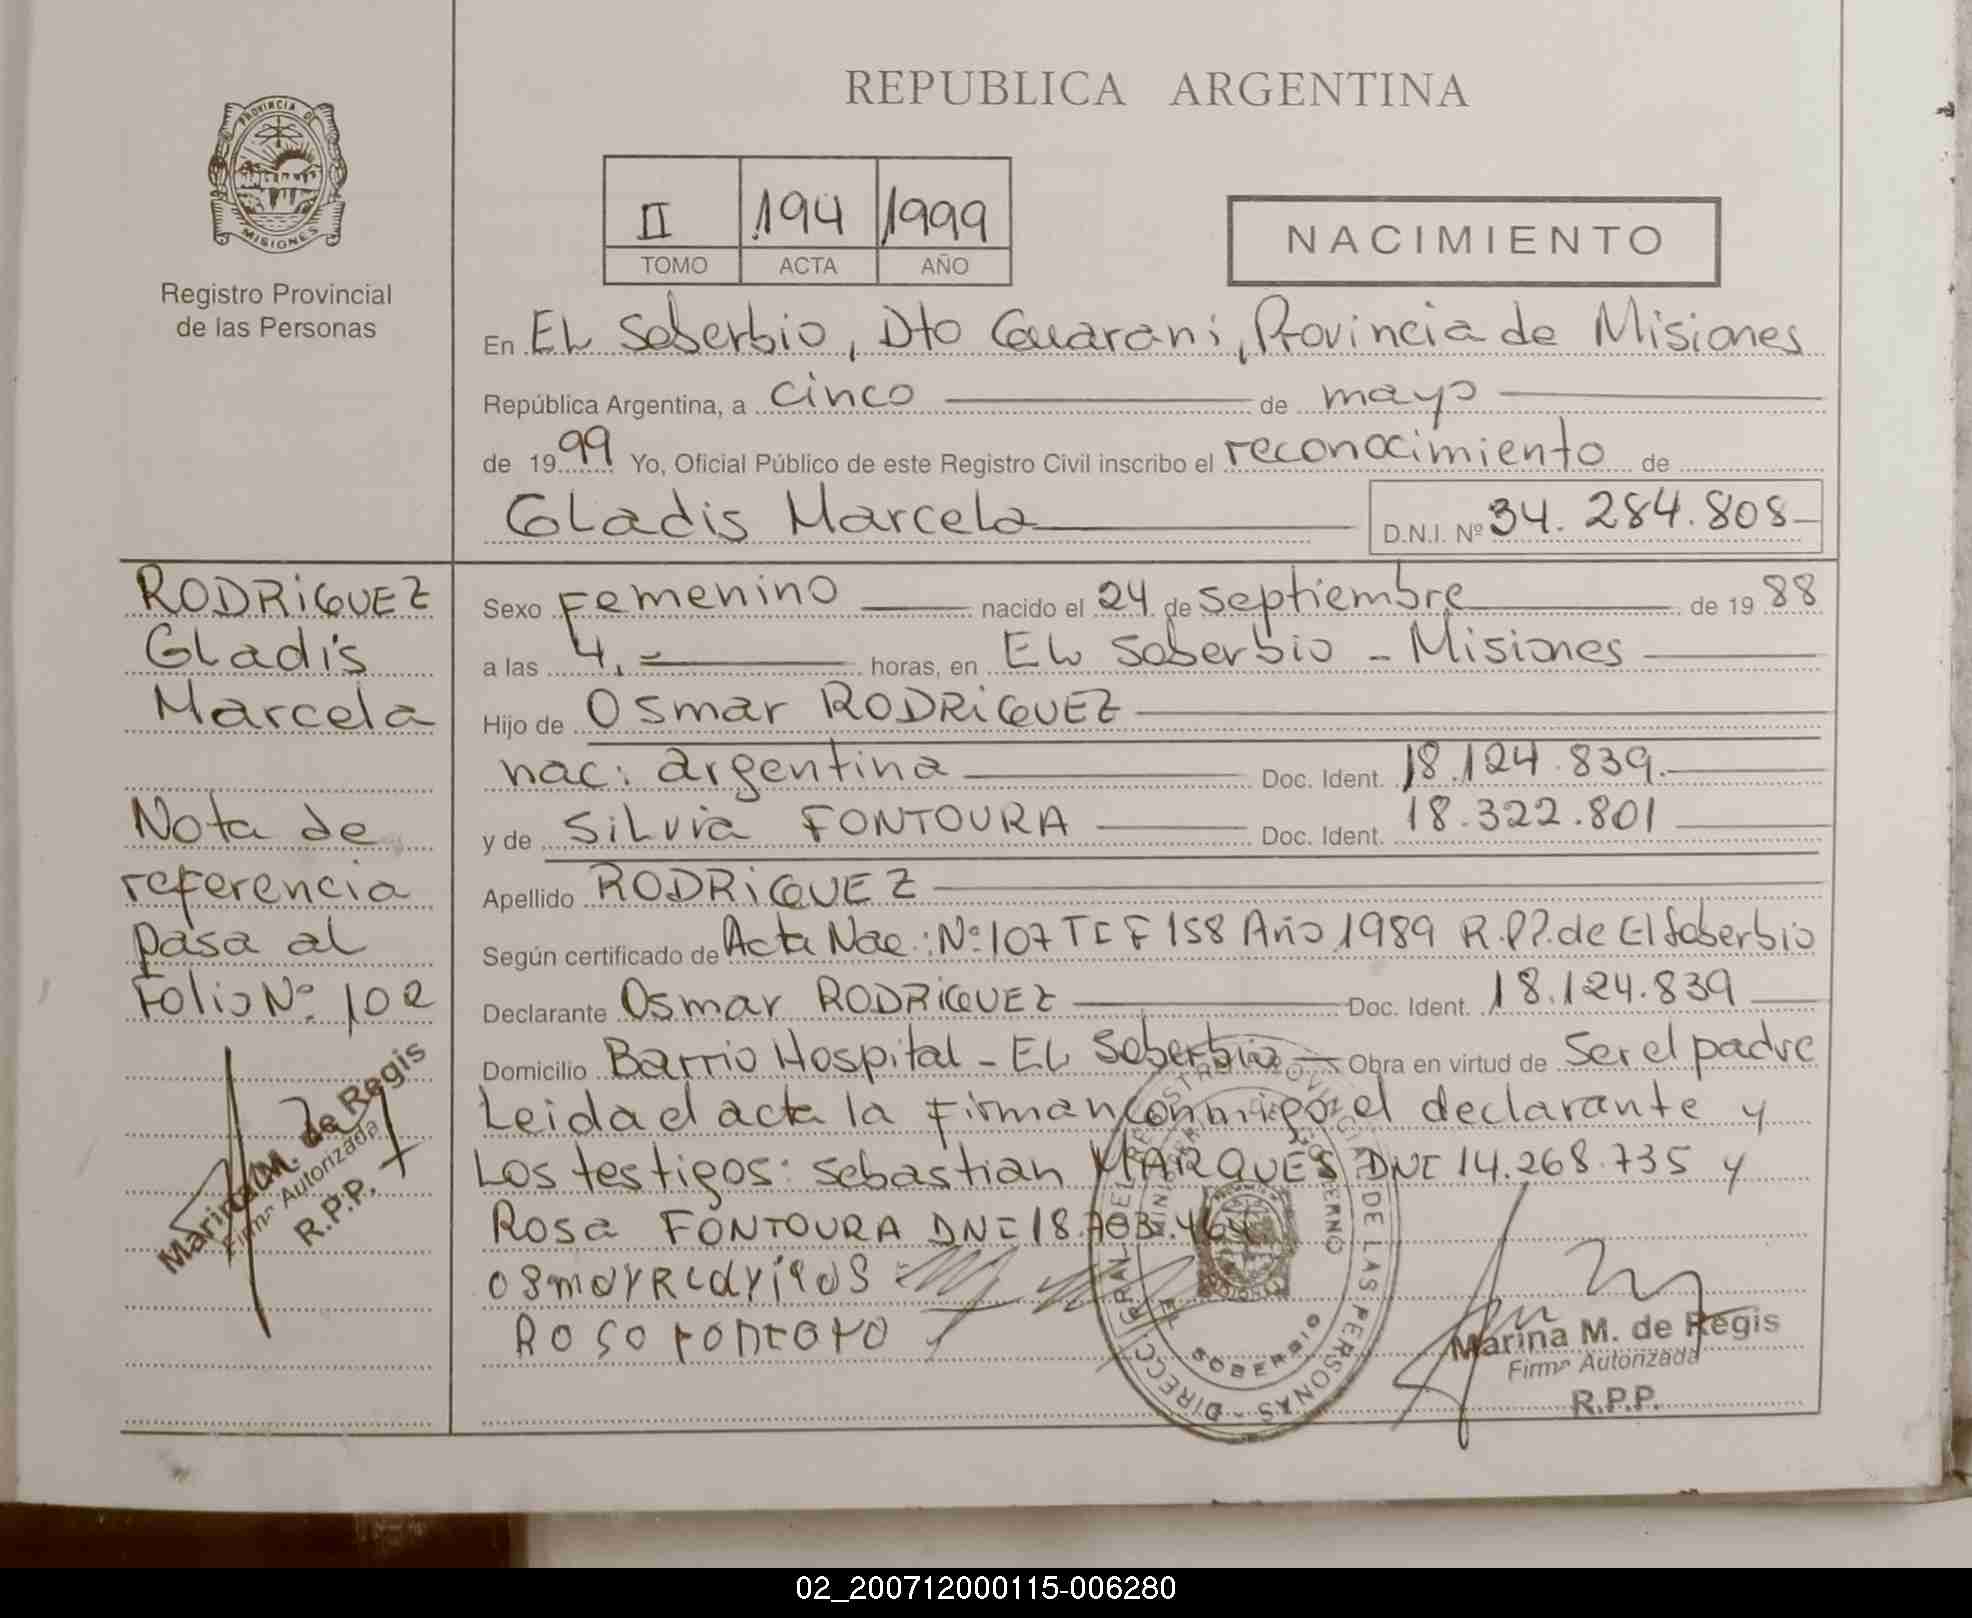 REPUBLICA ARGENTINA
PROVINCIA DE MISIONES
Registro Provincial
de las Personas
II 194 1999
TOMO ACTA AÑO
NACIMIENTO
En EL Soberbio, Dto Guarani, Provincia de Misiones
República Argentina, a cinco de mayo
de 1999 Yo, Oficial Público de este Registro Civil inscribo el reconocimiento de
Gladis Marcela D.N.I. Nº 34.284.808
RODRIGUEZ
Gladis
Marcela
Nota de
referencia
pasa al
Folio Nº 102
Marina M. de Regis
Firma Autorizada
R.P.P.
Sexo Femenino nacido el 24 de septiembre de 1988
a las 4.- horas, en EL Soberbio - Misiones
Hijo de Osmar RODRIGUEZ
nac: argentina Doc. Ident. 18.124.839.
y de Silvia FONTOURA Doc. Ident. 18.322.801
Apellido RODRIGUEZ
Según certificado de Acta Nac: Nº 107 TI F 158 Año 1989 R.P.P. de El Soberbio
Declarante Osmar RODRIGUEZ Doc. Ident. 18.124.839
Domicilio Barrio Hospital - EL Soberbio Obra en virtud de Ser el padre
Leida el acta la Firman conmigo el declarante y
Los testigos: Sebastian MARQUES DNI 14.268.735 y
Rosa FONTOURA DNI 18.
DIRECC. GRAL. DEL REGISTRO PROVINCIAL DE LAS PERSONAS
MINISTERIO DE GOBIERNO
EL SOBERBIO
Marina M. de Regis
Firma Autorizada
R.P.P.
02_200712000115-006280